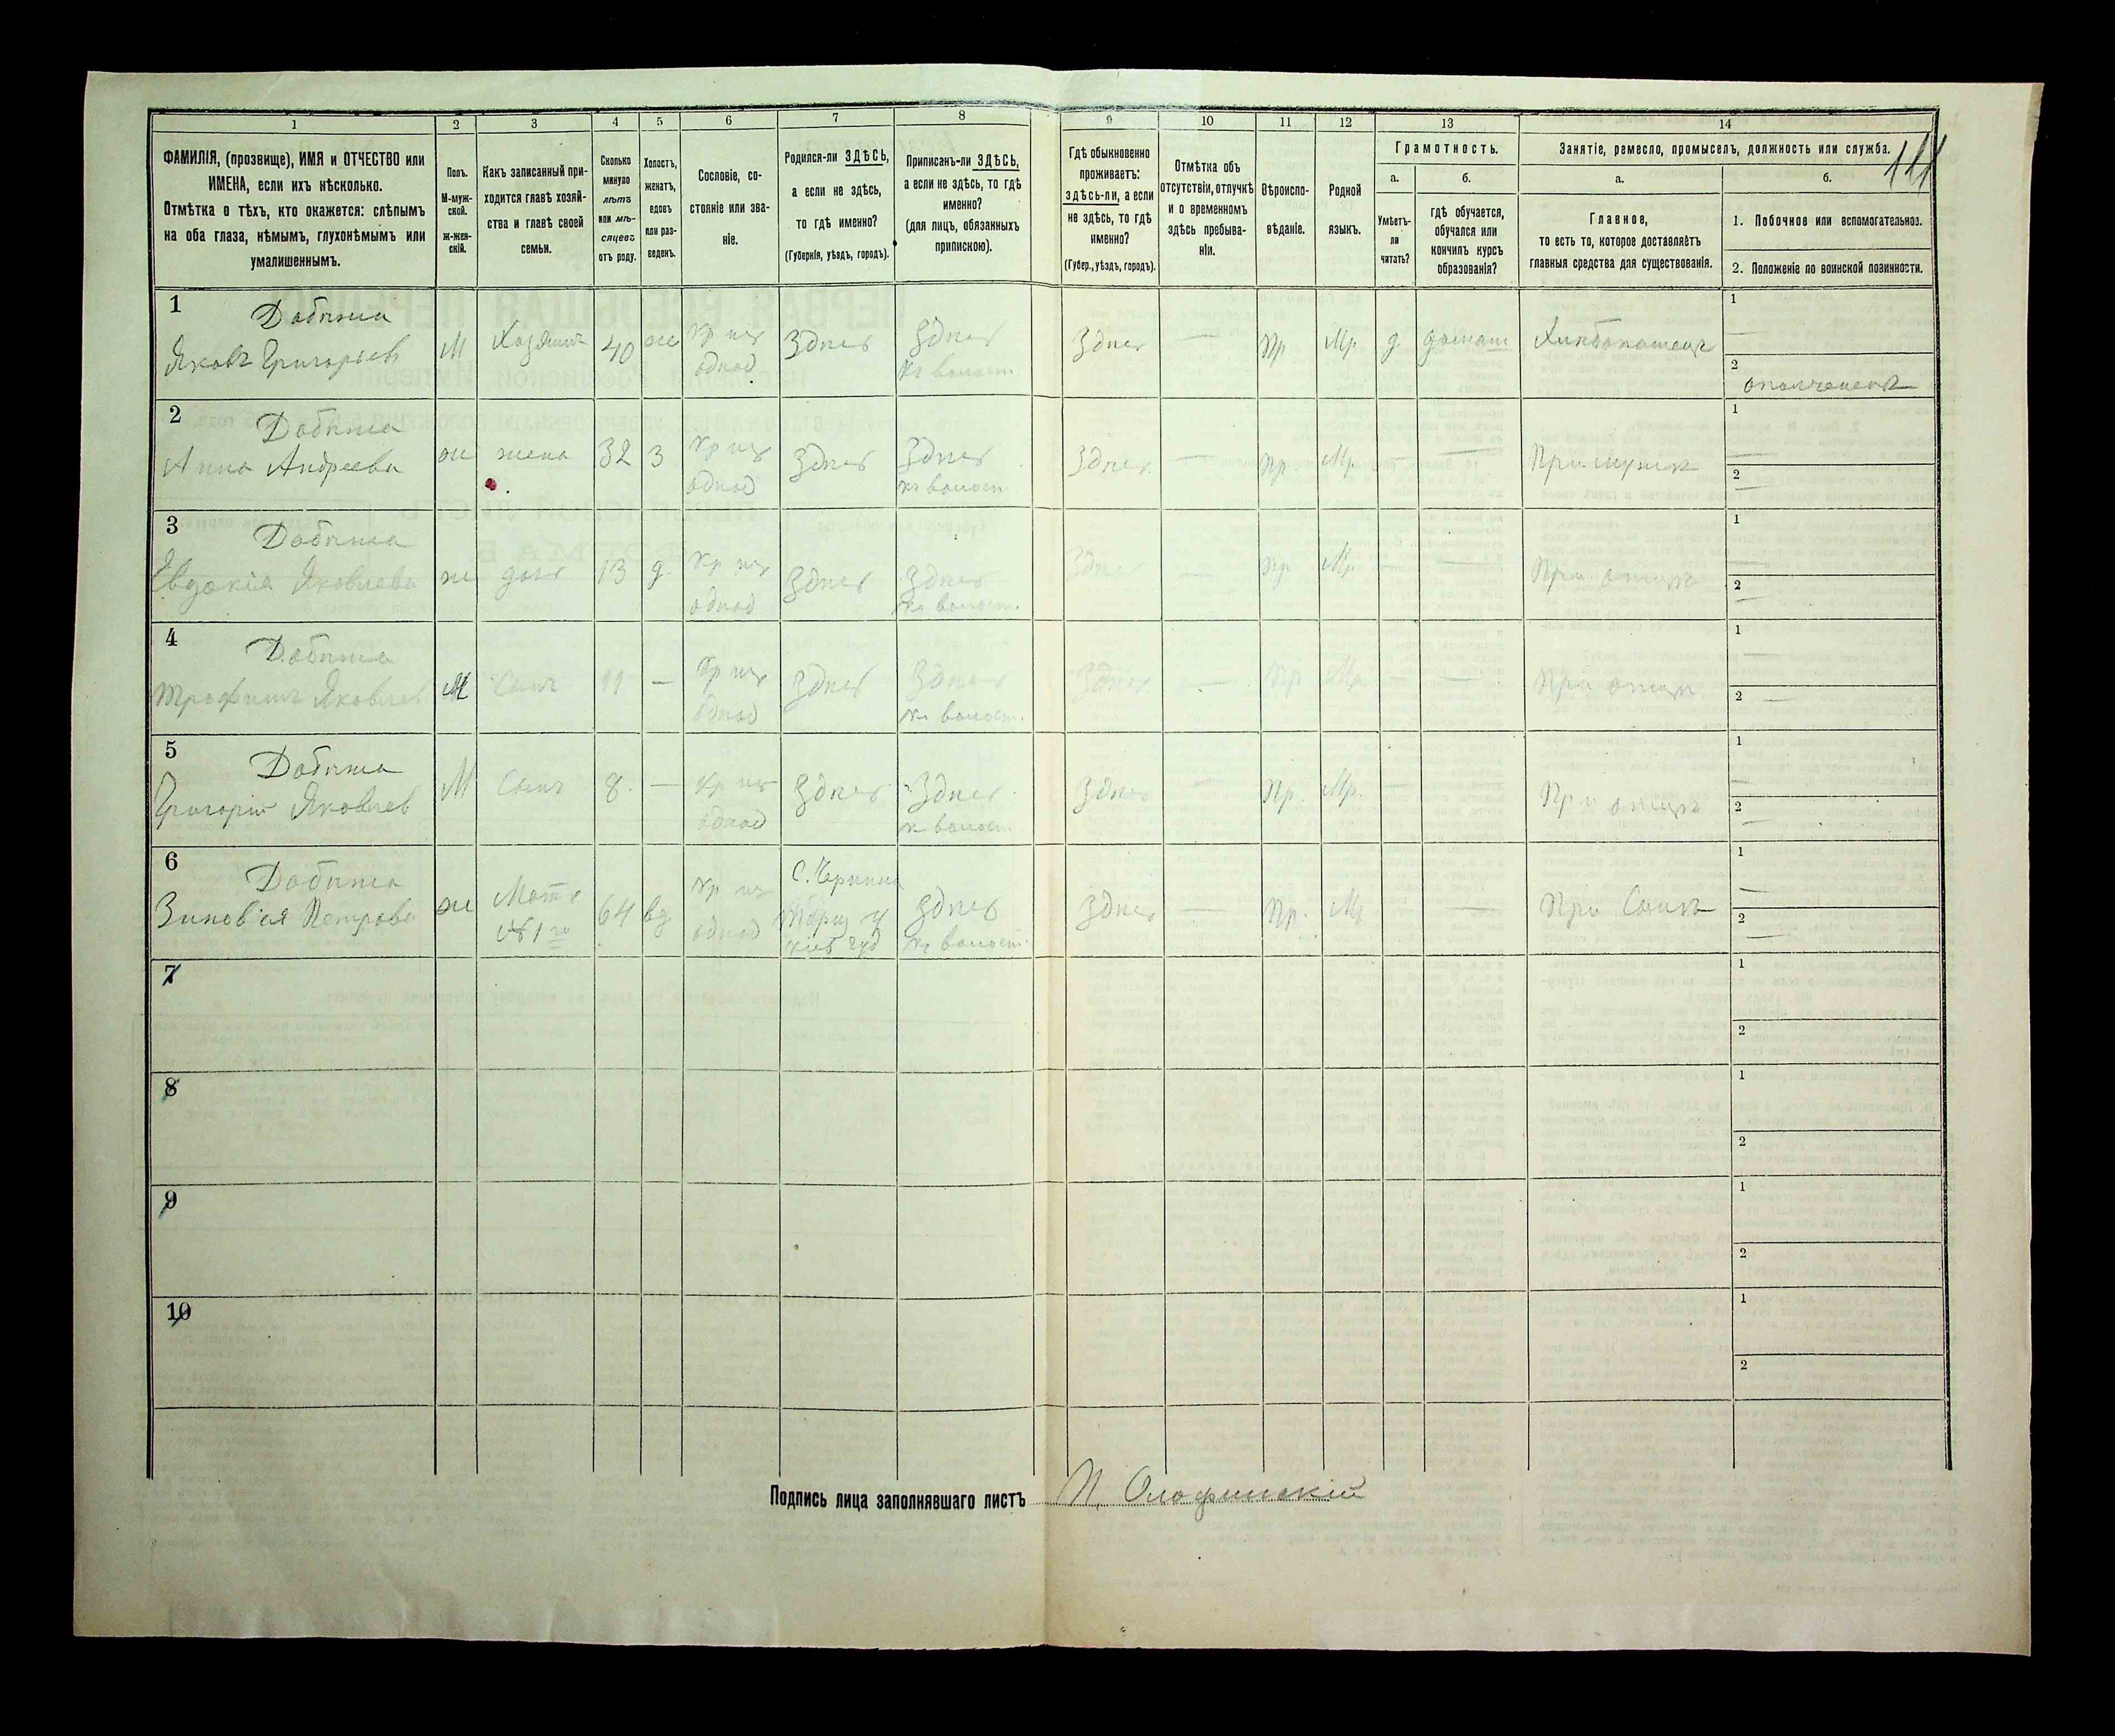 1 2 3 4 5 6 7 8 9 10 11 12 13 14
ФАМИЛІЯ, (прозвище), ИМЯ и ОТЧЕСТВО или
ИМЕНА, если ихъ нѣсколько.
Отмѣтка о тѣхъ, кто окажется: слѣпымъ
на оба глаза, нѣмымъ, глухонѣмымъ или
умалишеннымъ.
Полъ.
М-муж-
ской.
ж-жен-
скій.
Какъ записанный при-
ходится главѣ хозяй-
ства и главѣ своей
семьи.
Сколько
минуло
лѣтъ
или мѣ-
сяцевъ
отъ роду.
Холостъ,
женатъ,
вдовъ
или раз-
веденъ.
Сословіе, со-
стояніе или зва-
ніе.
Родился-ли ЗДѢСЬ,
а если не здѣсь,
то гдѣ именно?
(Губернія, уѣздъ, городъ).
Приписанъ-ли ЗДѢСЬ,
а если не здѣсь, то гдѣ
именно?
(для лицъ, обязанныхъ
припискою).
Гдѣ обыкновенно
проживаетъ:
здѣсь-ли, а если
не здѣсь, то гдѣ
именно?
(Губер., уѣздъ, городъ).
Отмѣтка объ
отсутствіи, отлучкѣ
и о временномъ
здѣсь пребыва-
ніи.
Вѣроиспо-
вѣданіе.
Родной
языкъ.
Грамотность.
а.
Умѣетъ-
ли
читать?
б.
гдѣ обучается,
обучался или
кончилъ курсъ
образованія?
Занятіе, ремесло, промыселъ, должность или служба.
а.
Главное,
то есть то, которое доставляетъ
главныя средства для существованія.
б.
1. Побочное или вспомогательное.
2. Положеніе по воинской повинности.
1
Яковъ Григорьевъ М Хозяинъ 40 ж Кр из однод Здѣсь Здѣсь къ волост. Здѣсь — Пр. Мр. д. домаш Хлѣбопашец
1 —
2 ополченецъ
2
Анна Андреева ж жена 32 з Кр из однод Здѣсь Здѣсь къ волост Здѣсь — Пр. Мр. — — При мужѣ
1 —
2 —
3
Евдокія Яковлева ж дочь 13 д. Кр из однод Здѣсь Здѣсь къ волост. Здѣсь — Пр Мр. — — При отцѣ
1 —
2 —
4
Трофимъ Яковлев М Сынъ 11 — Кр из однод Здѣсь Здѣсь къ волост. Здѣсь — Пр Мр — — При отцѣ
1 —
2 —
5
Григорій Яковлев М Сынъ 8. — Кр из однод Здѣсь Здѣсь къ волост. Здѣсь — Пр. Мр. — При отцѣ
1 —
2 —
6
Зиновія Петрова ж Мать №1го 64 вд Кр из однод кіев губ Здѣсь къ волост. Здѣсь — Пр. Мр — — При Сынѣ
1 —
2 —
7
1
2
8
1
2
9
1
2
10
1
2
Подпись лица заполнявшаго листъ